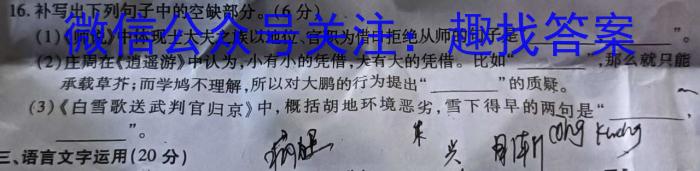 16.补写出下列句子中的空缺部分。(6分)
(1)《师说》中体现士大夫之族以地位、官职为借口拒绝从师的句子是"______"。
微信公众号关注：趣找答案
(2)庄周在《逍遥游》中认为,小有小的凭借,大有大的凭借。比如"______",那么就只能
承载草芥;而学鸠不理解,所以对大鹏的行为提出"______"的质疑。
(3)《白雪歌送武判官归京》中,概括胡地环境恶劣,雪下得早的两句是"______,
______"。
三、语言文字运用(20分)